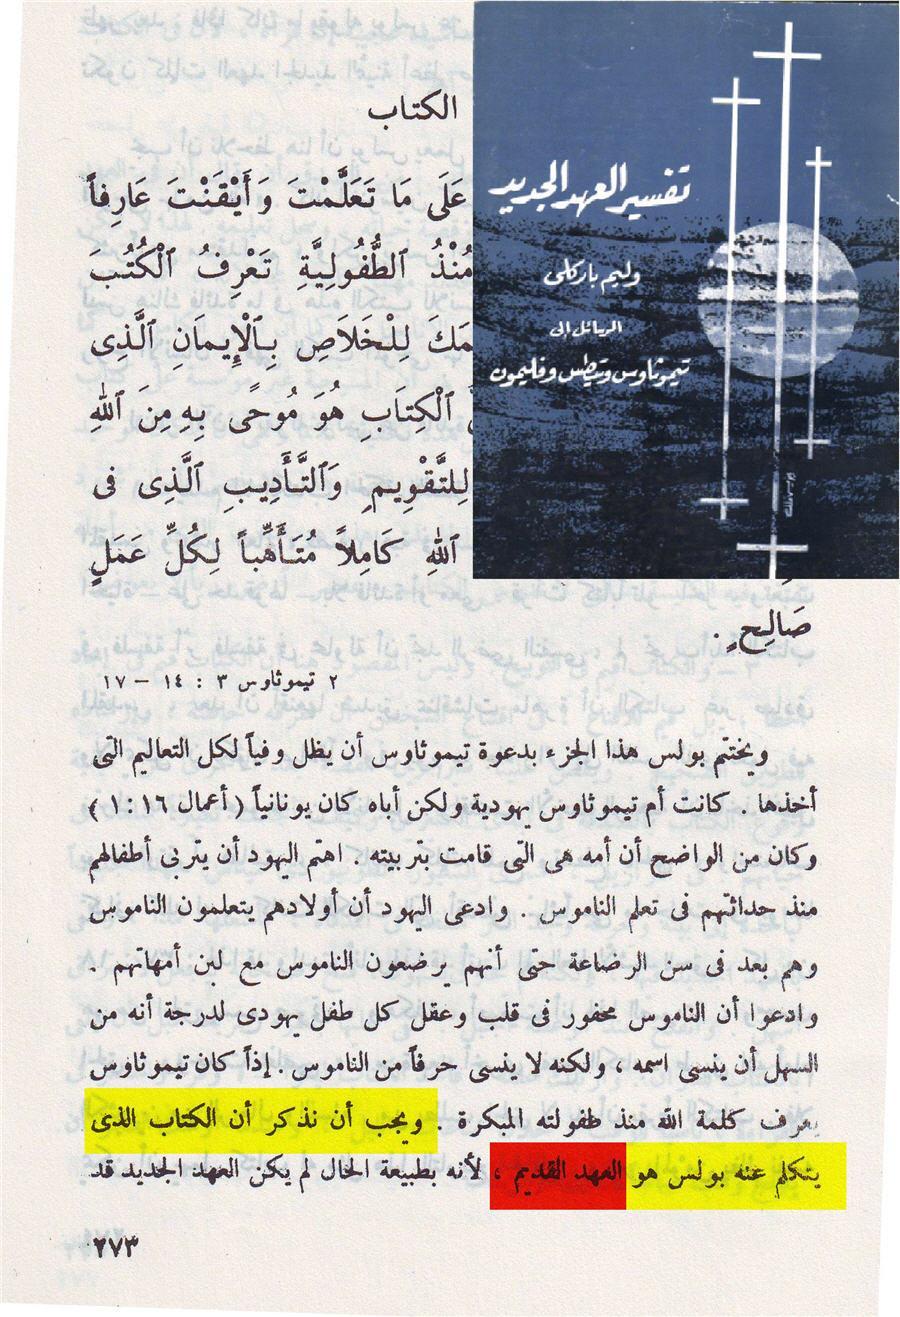 الكتاب
عَلَى مَا تَعَلَّمْتَ وَأَيْقَنْتَ عَارِفاً
مُنْذُ ٱلطُّفُولِيَّةِ تَعْرِفُ ٱلْكُتُبَ
مَكَ لِلْخَلَاصِ بِٱلْإِيمَانِ ٱلَّذِى
ٱلْكِتَابِ هُوَ مُوحًى بِهِ مِنَ ٱللهِ
لِلتَّقْوِيمِ وَٱلتَّأْدِيبِ ٱلَّذِى فِى
ٱللهِ كَامِلاً مُتَأَهِّباً لِكُلِّ عَمَلٍ
صَالِحٍ .
٢ تيموثاوس ٣ : ١٤ – ١٧
ويختتم بولس هذا الجزء بدعوة تيموثاوس أن يظل وفياً لكل التعاليم التى
أخذها . كانت أم تيموثاوس يهودية ولكن أباه كان يونانياً ( أعمال ١٦ : ١ )
وكان من الواضح أن أمه هى التى قامت بتربيته . اهتم اليهود أن يتربى أطفالهم
منذ حداثتهم فى تعلم الناموس . وادعى اليهود أن أولادهم يتعلمون الناموس
وهم بعد فى سن الرضاعة حتى أنهم يرضعون الناموس مع لبن أمهاتهم .
وادعوا أن الناموس محفور فى قلب وعقل كل طفل يهودى لدرجة أنه من
السهل أن ينسى اسمه ، ولكنه لا ينسى حرفاً من الناموس . إذاً كان تيموثاوس
يعرف كلمة الله منذ طفولته المبكرة . ويجب أن نذكر أن الكتاب الذى
يتكلم عنه بولس هو العهد القديم ، لأنه بطبيعة الحال لم يكن العهد الجديد قد
٢٧٣
تفسير العهد الجديد
وليم باركلى
الرسائل إلى
تيموثاوس وتيطس وفليمون